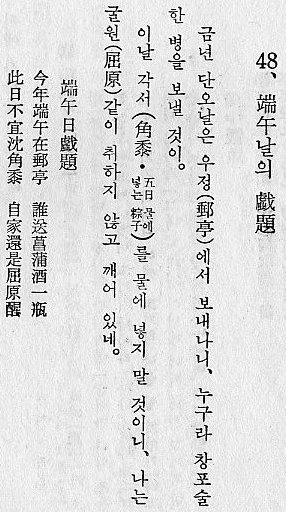 48、端午날의 戱題
금년 단오날은 우정(郵亭)에서 보내나니、누구라 창포술
한 병을 보낼 것이。
이날 각서(角黍·五日 물에 넣는 粽子)를 물에 넣지 말 것이니、나는
굴원(屈原)같이 취하지 않고 깨어 있네。
端午日戱題
今年端午在郵亭 誰送菖蒲酒一瓶
此日不宜沈角黍 自家還是屈原醒